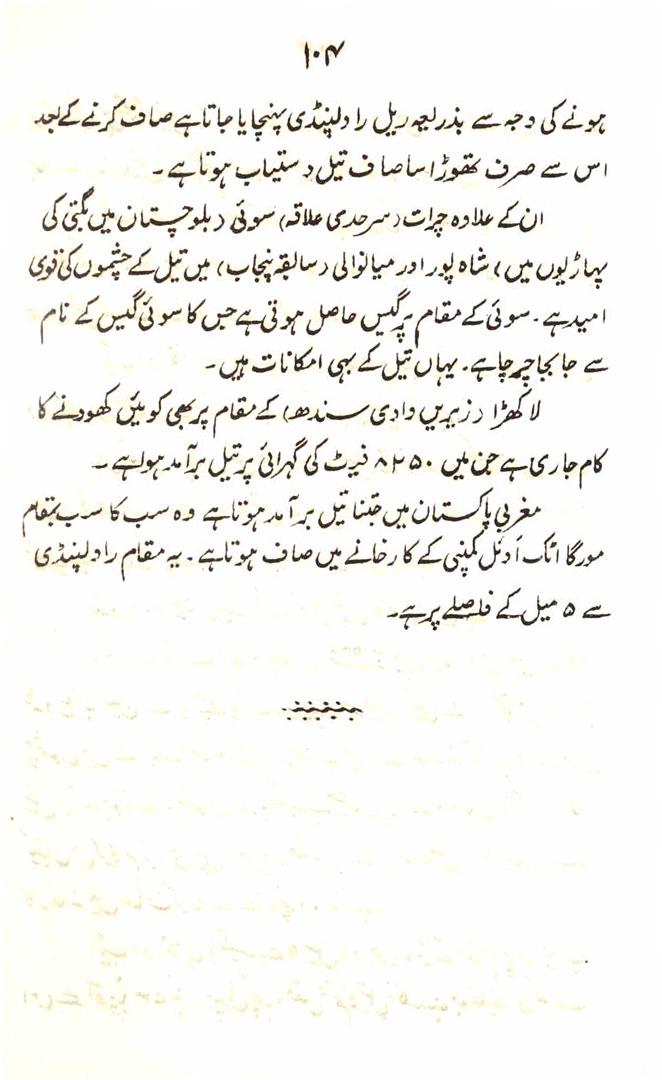 ۱۰۴
ہونے کی وجہ سے بذریعہ ریل راولپنڈی پہنچایا جاتا ہے صاف کرنے کے بعد
اس سے صرف تھوڑا سا صاف تیل دستیاب ہوتا ہے۔
ان کے علاوہ چرات (سرحدی علاقہ) سوئی (بلوچستان میں بگتی کی
پہاڑیوں میں) شاہ پور اور میانوالی (سابقہ پنجاب) میں تیل کے چشموں کی قوی
امید ہے۔ سوئی کے مقام پر گیس حاصل ہوتی ہے جس کا سوئی گیس کے نام
سے جا بجا چرچا ہے۔ یہاں تیل کے بہی امکانات ہیں۔
لاکھڑا (زیریں وادی سندھ) کے مقام پر بھی کوئیں کھودنے کا
کام جاری ہے جن میں ۸۲۵۰ فیٹ کی گہرائی پر تیل برآمد ہوا ہے۔
مغربی پاکستان میں جتنا تیل برآمد ہوتا ہے وہ سب کا سرب بمقام
مورگا اٹک آدئل کمپنی کے کارخانے میں صاف ہوتا ہے۔ یہ مقام راولپنڈی
سے ۵ میل کے فاصلے پر ہے۔